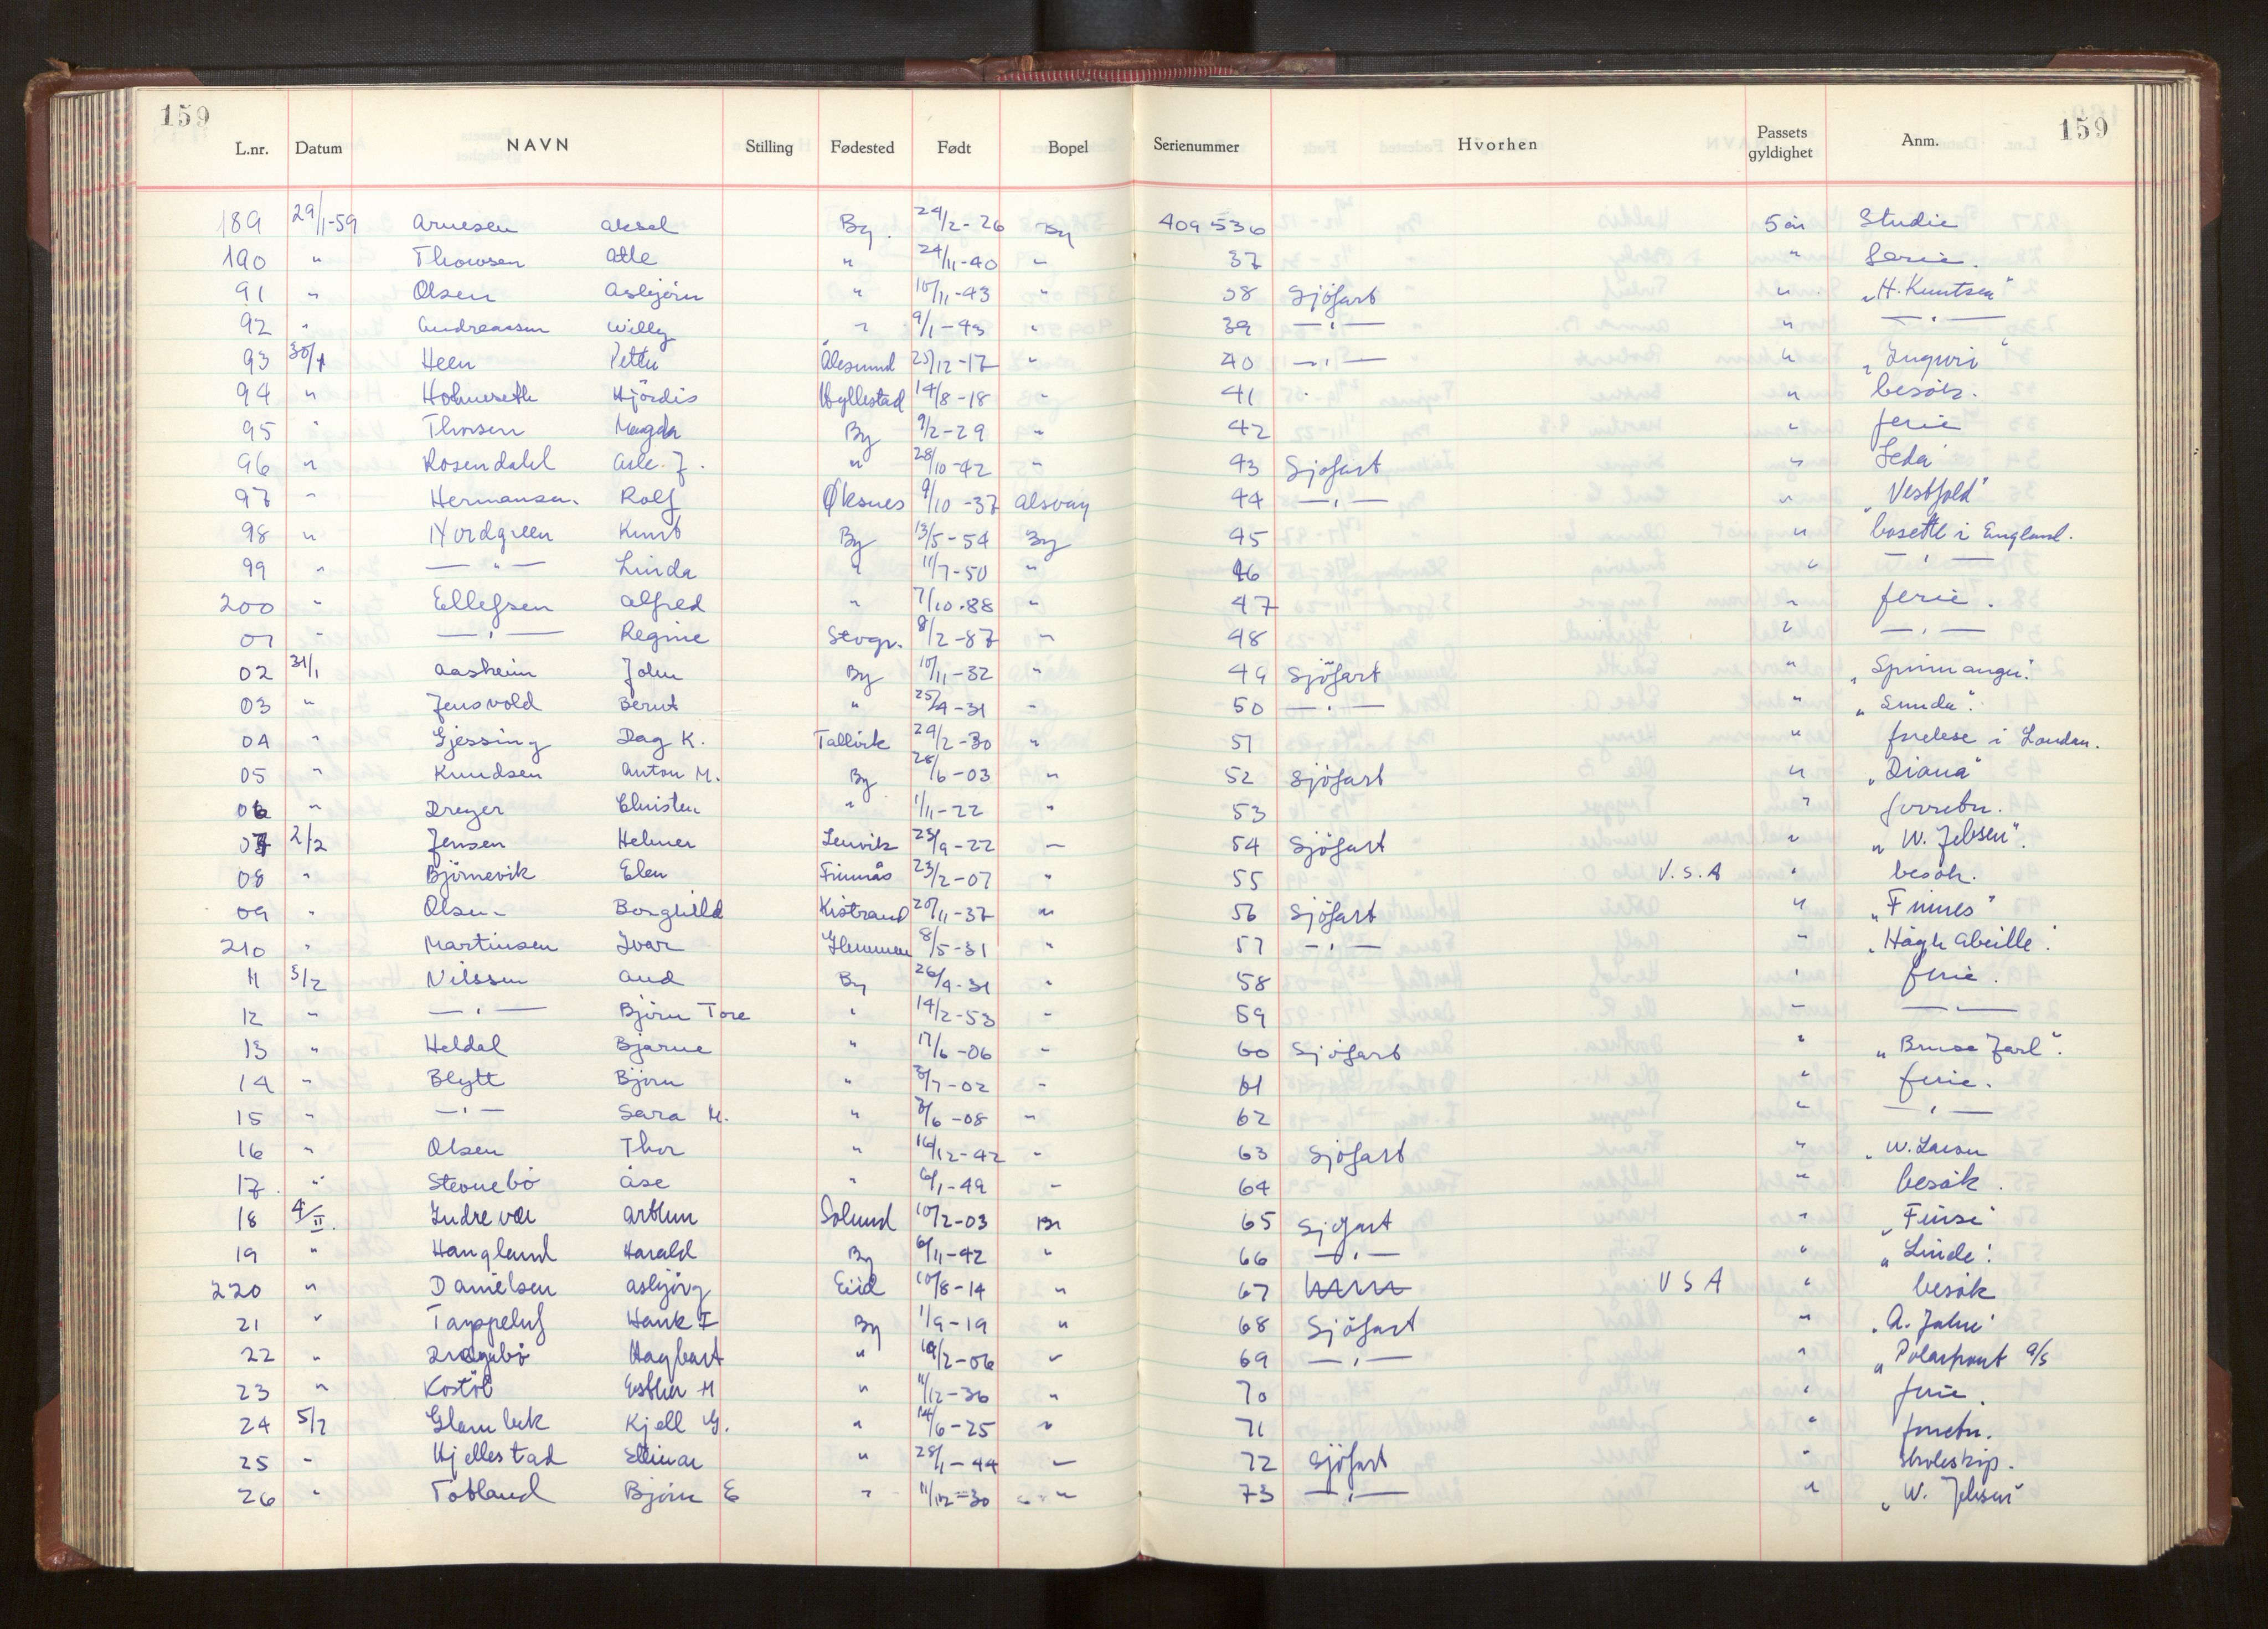 159 159
L.nr. Datum NAVN Stilling Fødested Født Bopel Serienummer Hvorhen Passets gyldighet Anm.
189 29/1-59 Arnesen Aksel By. 24/2-26 By 409536 5 år Studie
190 " Thowsen Atle " 24/11-40 " 37 " ferie.
91 " Olsen Asbjörn " 10/11-43 " 38 Sjöfart " "H. Knutsen"
92 " Andreassen Willy " 9/1-43 " 39 —"— " —"—
93 30/1 Heen Petter Ålesund 25/12-17 " 40 —"— " "Inguri"
94 " Holmeseth Hjördis Hyllestad 14/8-18 " 41 " besök.
95 " Thorsen Magda By 9/2-29 " 42 " ferie
96 " Rosendahl Asle. J. " 28/10-42 " 43 Sjöfart " Leda
97 " Hermansen. Rolf Øksnes 9/10-37 Alsvåg 44 —"— " "Vestfold"
98 " Nordgreen Knut By 13/5-54 By 45 " bosette i England.
99 " —"— Linda " 11/7-50 " 46 " —"—
200 " Ellefsen Alfred " 7/10-88 " 47 " ferie.
01 " —"— Regine Stvgr. 8/2-87 " 48 " —"—
02 31/1 Aasheim John By 10/11-32 " 49 Sjöfart " "Spinnanger".
03 " Jensvold Bernt " 25/4-31 " 50 —"— " "Sunda".
04 " Gjessing Dag K. Tallvik 29/2-30 " 51 " forelese i London.
05 " Knudsen Anton M. By 28/6-03 " 52 Sjöfart " "Diana"
06 " Dreyer Christen " 1/11-22 " 53 " forretn.
07 2/2 Jensen Helmer Lenvik 23/9-22 — 54 Sjöfart " "W. Jebsen".
08 " Björnevik Elen Finnås 23/2-07 " 55 U.S.A " besök.
09 " Olsen Borghild Kistrand 20/11-37 " 56 Sjöfart " "Finnes"
210 " Martinsen Ivar Glemmen 8/5-31 " 57 —"— " "Högh Abeille".
11 3/2 Nilssen Aud By 26/4-31 " 58 " ferie.
12 " —"— Björn Tore " 14/2-53 " 59 " ———
13 " Heldal Bjarne " 17/6-06 " 60 Sjöfart " "Bruse Jarl".
14 " Blytt Björn " 3/7-02 " 61 " ferie.
15 " —"— Sara M. " 3/6-08 " 62 " —"—
16 " Olsen Thor " 16/12-42 " 63 Sjöfart " "W. Larsen
17. " Stevnebö Åse " 6/1-49 " 64 " besök.
18 4/II. Indrevær Arthur Solund 10/2-03 By 65 Sjöfart " "Finse"
19 " Haugland Harald By 6/11-42 " 66 —"— " "Linde".
220 " Danielsen Asbjörg Eid 10/8-14 " 67 U S A " besök
21 " Tappeluf Hank I By 1/9-19 " 68 Sjöfart " "A. Jahre"
22 " Dragebö Hagbart " 19/2-06 " 69 —"— " "Polarfront a/s
23 " Kostöl Esther M " 11/12-36 " 70 " ferie.
24 5/2 Glambek Kjell G. " 14/6-25 " 71 " forretn.
25 " Hjellestad Ellinar " 28/1-44 — 72 Sjöfart " skoleskip.
26 " Totland Björn E " 11/12-30 " 73 —"— " "W. Jebsen"